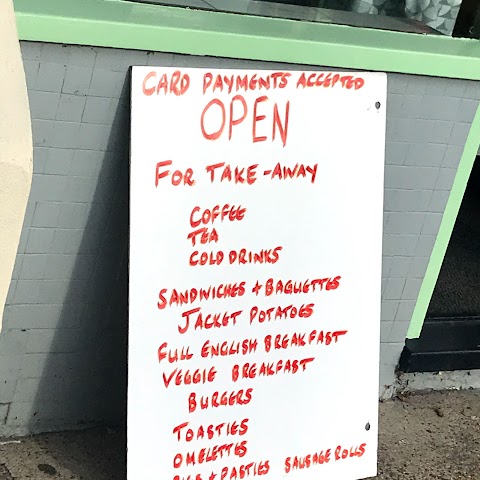 CARD PAYMENTS ACCEPTED
OPEN
FOR TAKE-AWAY
COFFEE
TEA
COLD DRINKS
SANDWICHES + BAGUETTES
JACKET POTATOES
FULL ENGLISH BREAKFAST
VEGGIE BREAKFAST
BURGERS
TOASTIES
OMELETTES
+ PASTIES SAUSAGE ROLLS